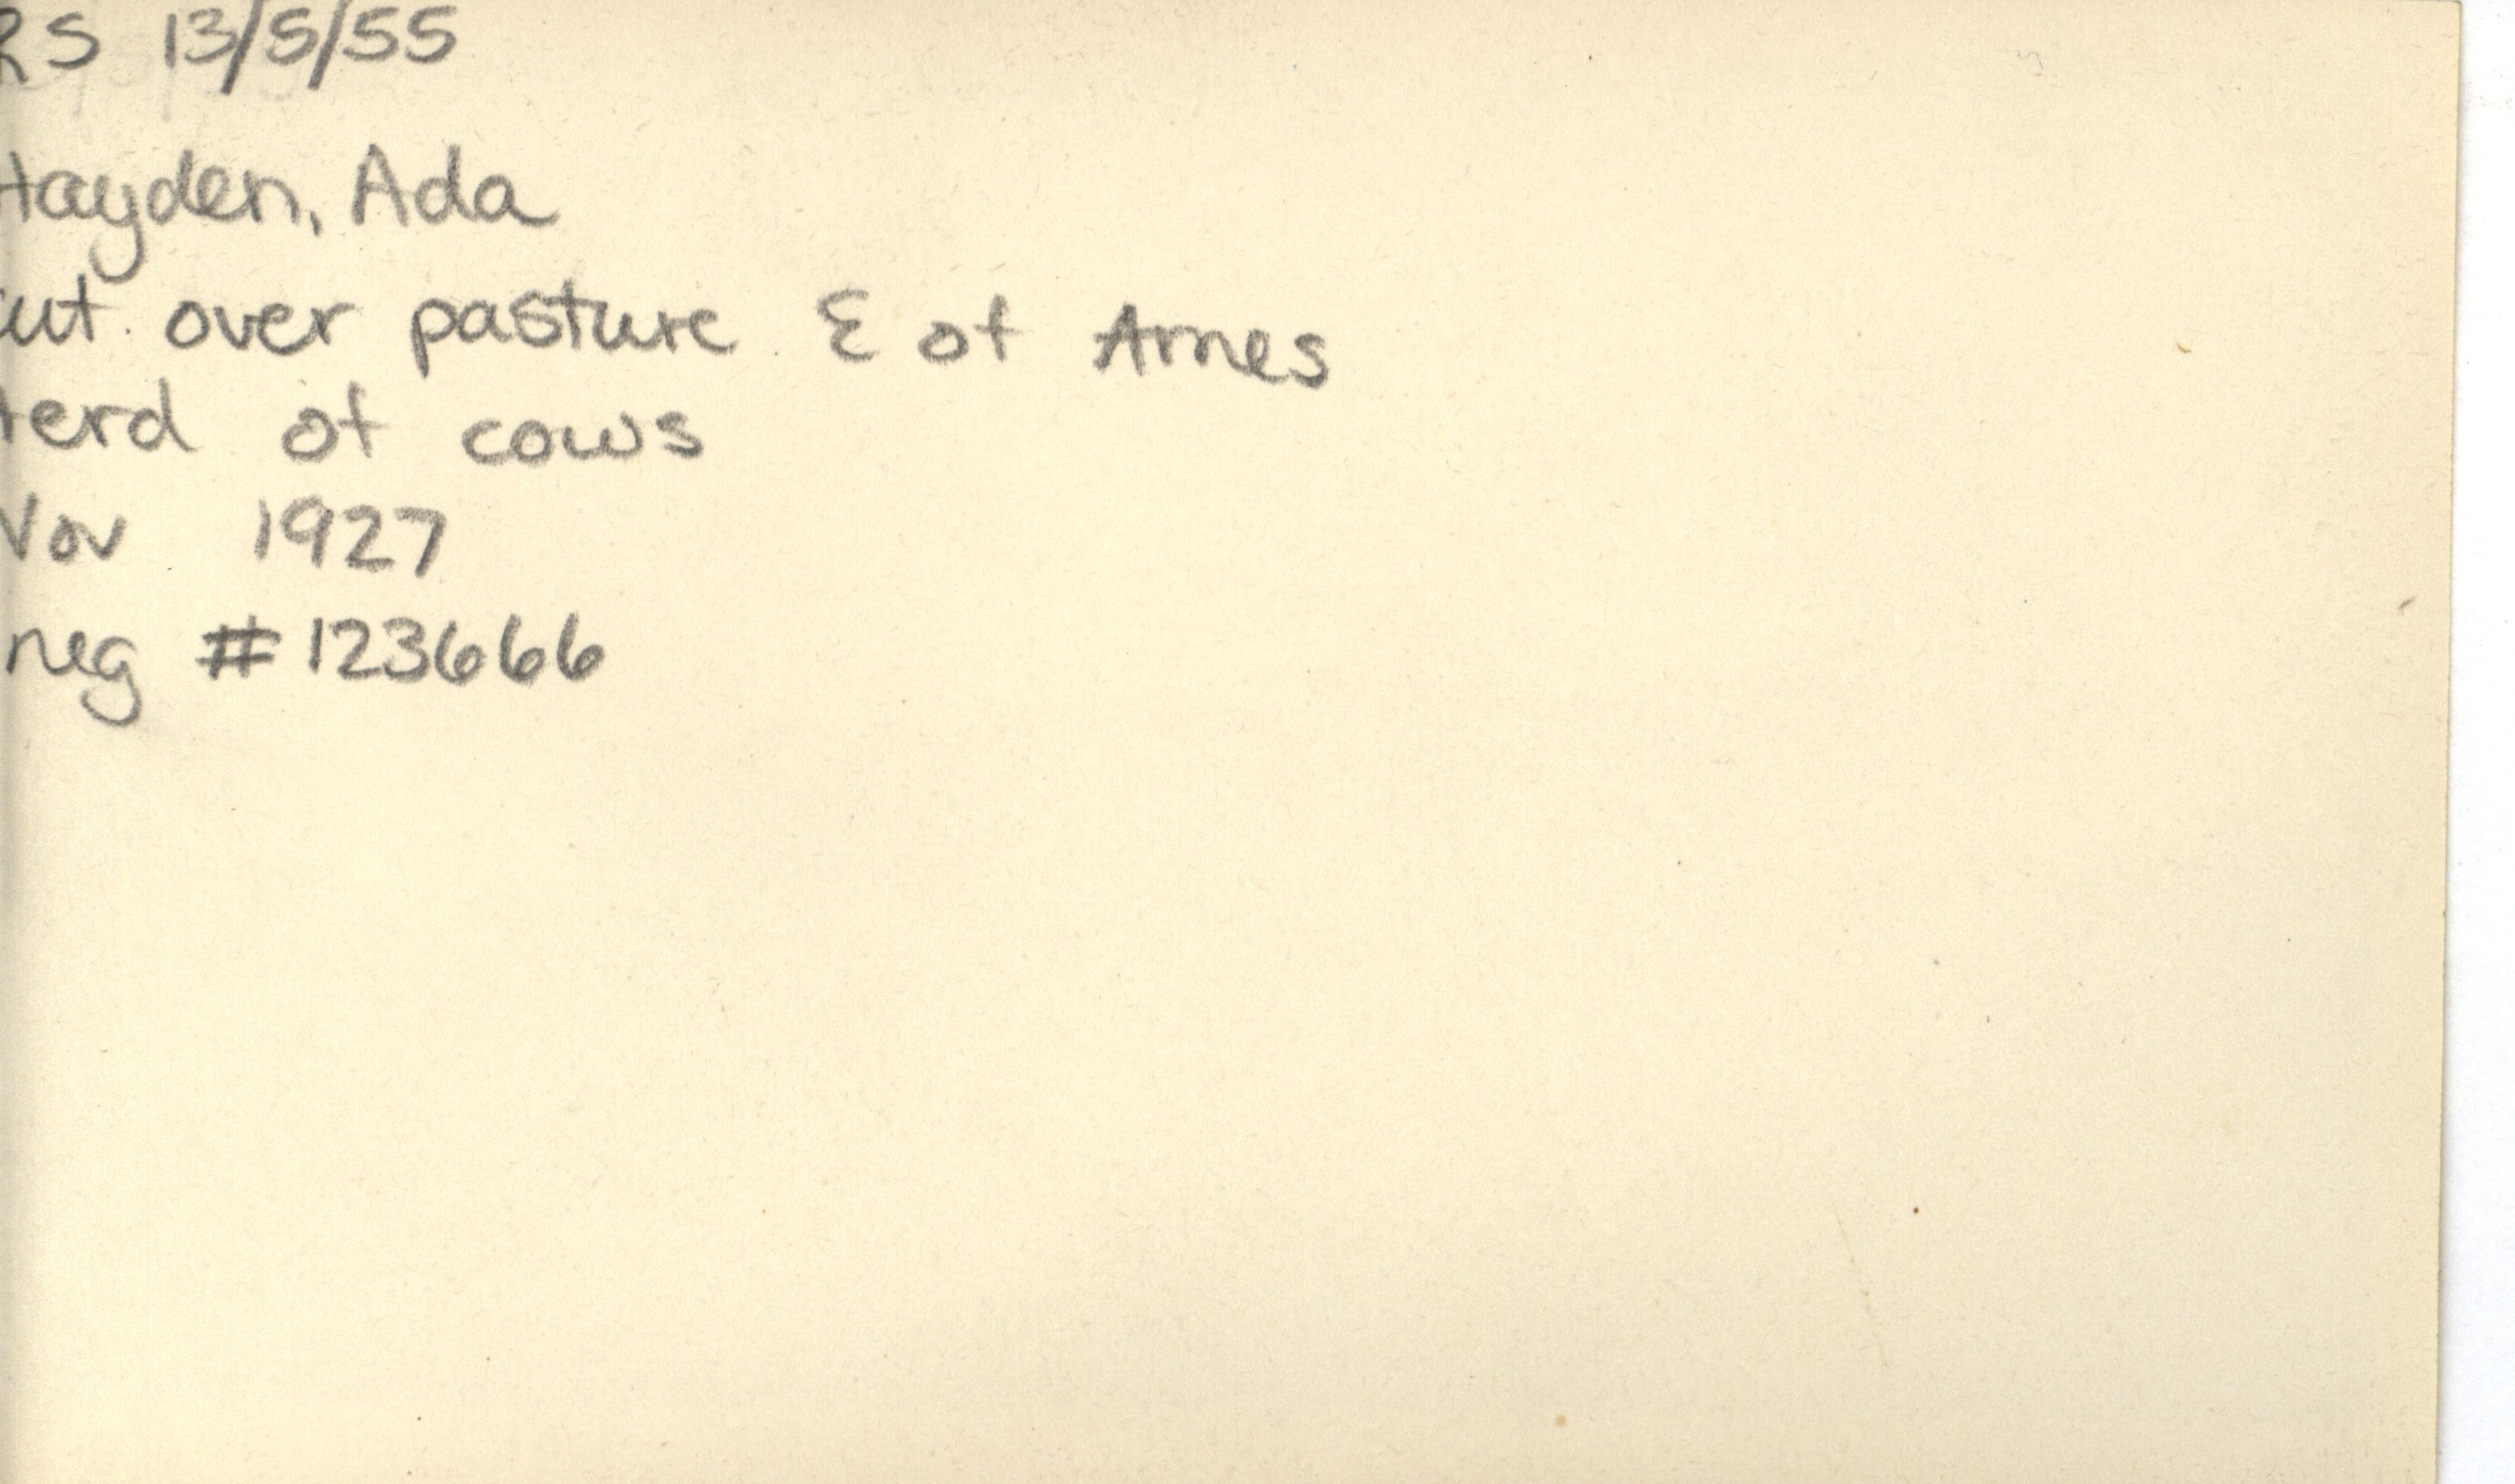 RS 13/5/55
Hayden, Ada
Cut over pasture E of Ames
Herd of cows
Nov 1927
neg #123666